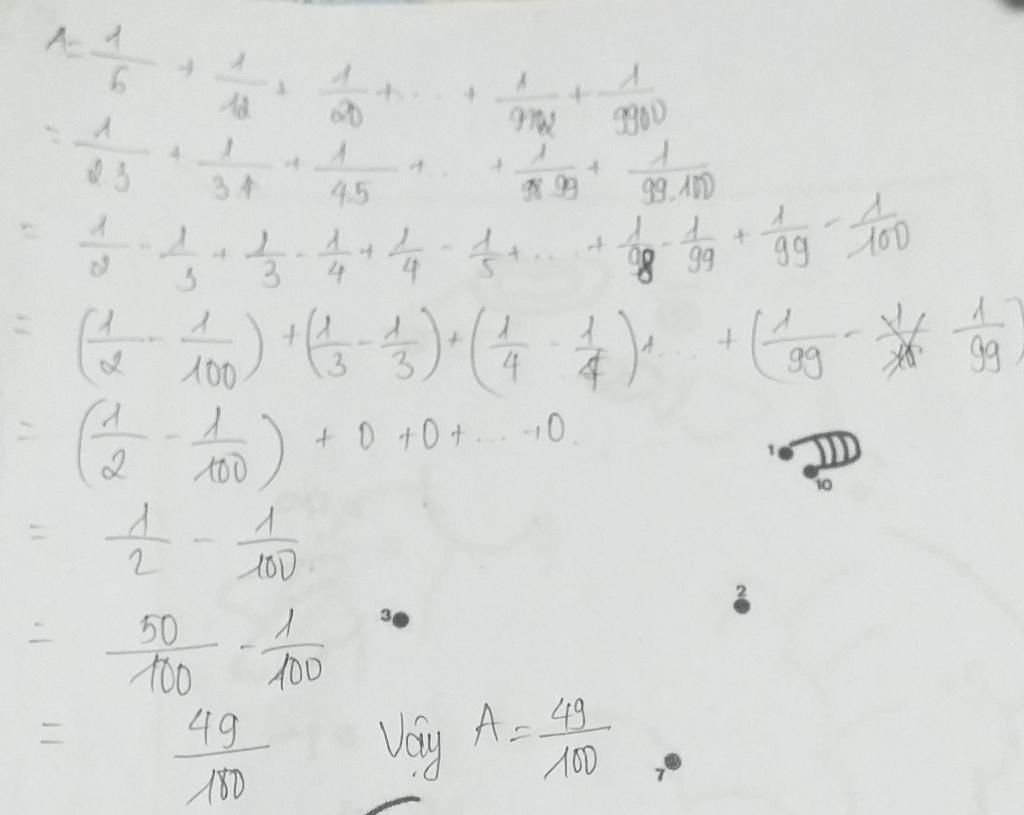 A = 1/6 + 1/12 + 1/20 + ... + 1/9702 + 1/9900
= 1/2.3 + 1/3.4 + 1/4.5 + ... + 1/98.99 + 1/99.100
= 1/2 - 1/3 + 1/3 - 1/4 + 1/4 - 1/5 + ... + 1/98 - 1/99 + 1/99 - 1/100
= (1/2 - 1/100) + (1/3 - 1/3) + (1/4 - 1/4) + ... + (1/99 - 1/99)
= (1/2 - 1/100) + 0 + 0 + ... + 0.
1 10
= 1/2 - 1/100
3 2
= 50/100 - 1/100
= 49/100 Vậy A = 49/100
7